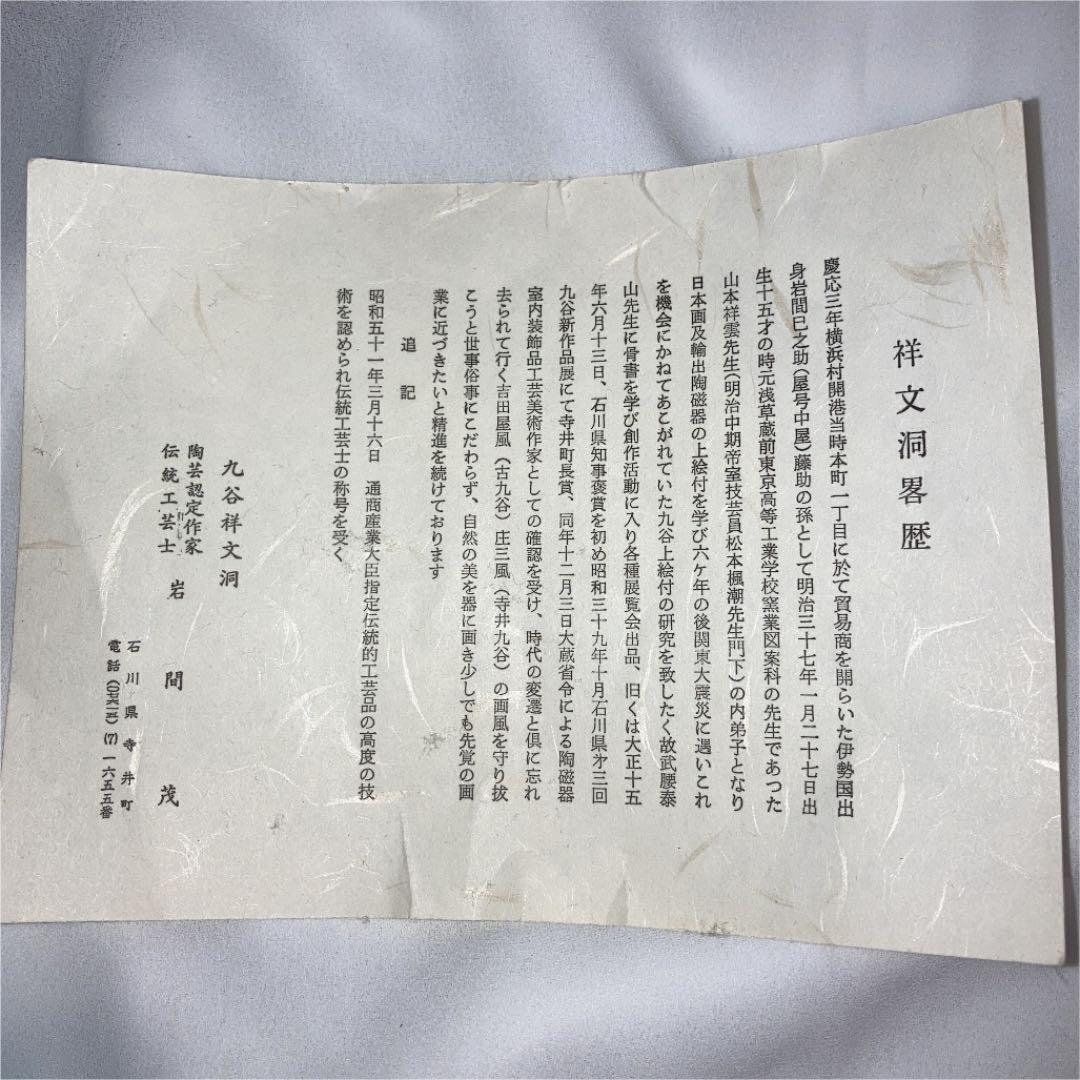 祥文洞畧歴
慶応三年横浜村開港当時本町一丁目に於て貿易商を開らいた伊勢国出
身岩間巳之助(屋号中屋)藤助の孫として明治三十七年一月二十七日出
生十五才の時元浅草蔵前東京高等工業学校窯業図案科の先生であつた
山本祥雲先生(明治中期帝室技芸員松本楓潮先生門下)の内弟子となり
日本画及輸出陶磁器の上絵付を学び六ケ年の後関東大震災に遇いこれ
を機会にかねてあこがれていた九谷上絵付の研究を致したく故武腰泰
山先生に骨書を学び創作活動に入り各種展覧会出品、旧くは大正十五
年六月十三日、石川県知事褒賞を初め昭和三十九年十月石川県才三回
九谷新作品展にて寺井町長賞、同年十二月三日大蔵省令による陶磁器
室内装飾品工芸美術作家としての確認を受け、時代の変遷と倶に忘れ
去られて行く吉田屋風(古九谷)庄三風(寺井九谷)の画風を守り抜
こうと世事俗事にこだわらず、自然の美を器に画き少しでも先覚の画
業に近づきたいと精進を続けております
追記
昭和五十一年三月十六日 通商産業大臣指定伝統的工芸品の高度の技
術を認められ伝統工芸士の称号を受く
九谷祥文洞
陶芸認定作家
伝統工芸士 岩間茂
石川県寺井町
電話(〇七六一五)(7)一六五五番